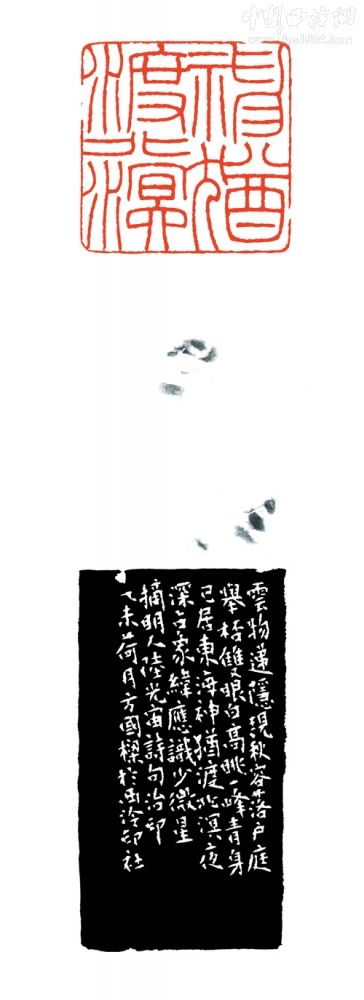 中国西泠网
神猶
渡北溟
雲物遞隱現秋容落戶庭
舉桮雙眼白高眺一峰青身
已居東海神猶渡北溟夜
深占象緯應識少微星
摘明人陸光宙詩句治印
乙未荷月方國樑於西泠印社